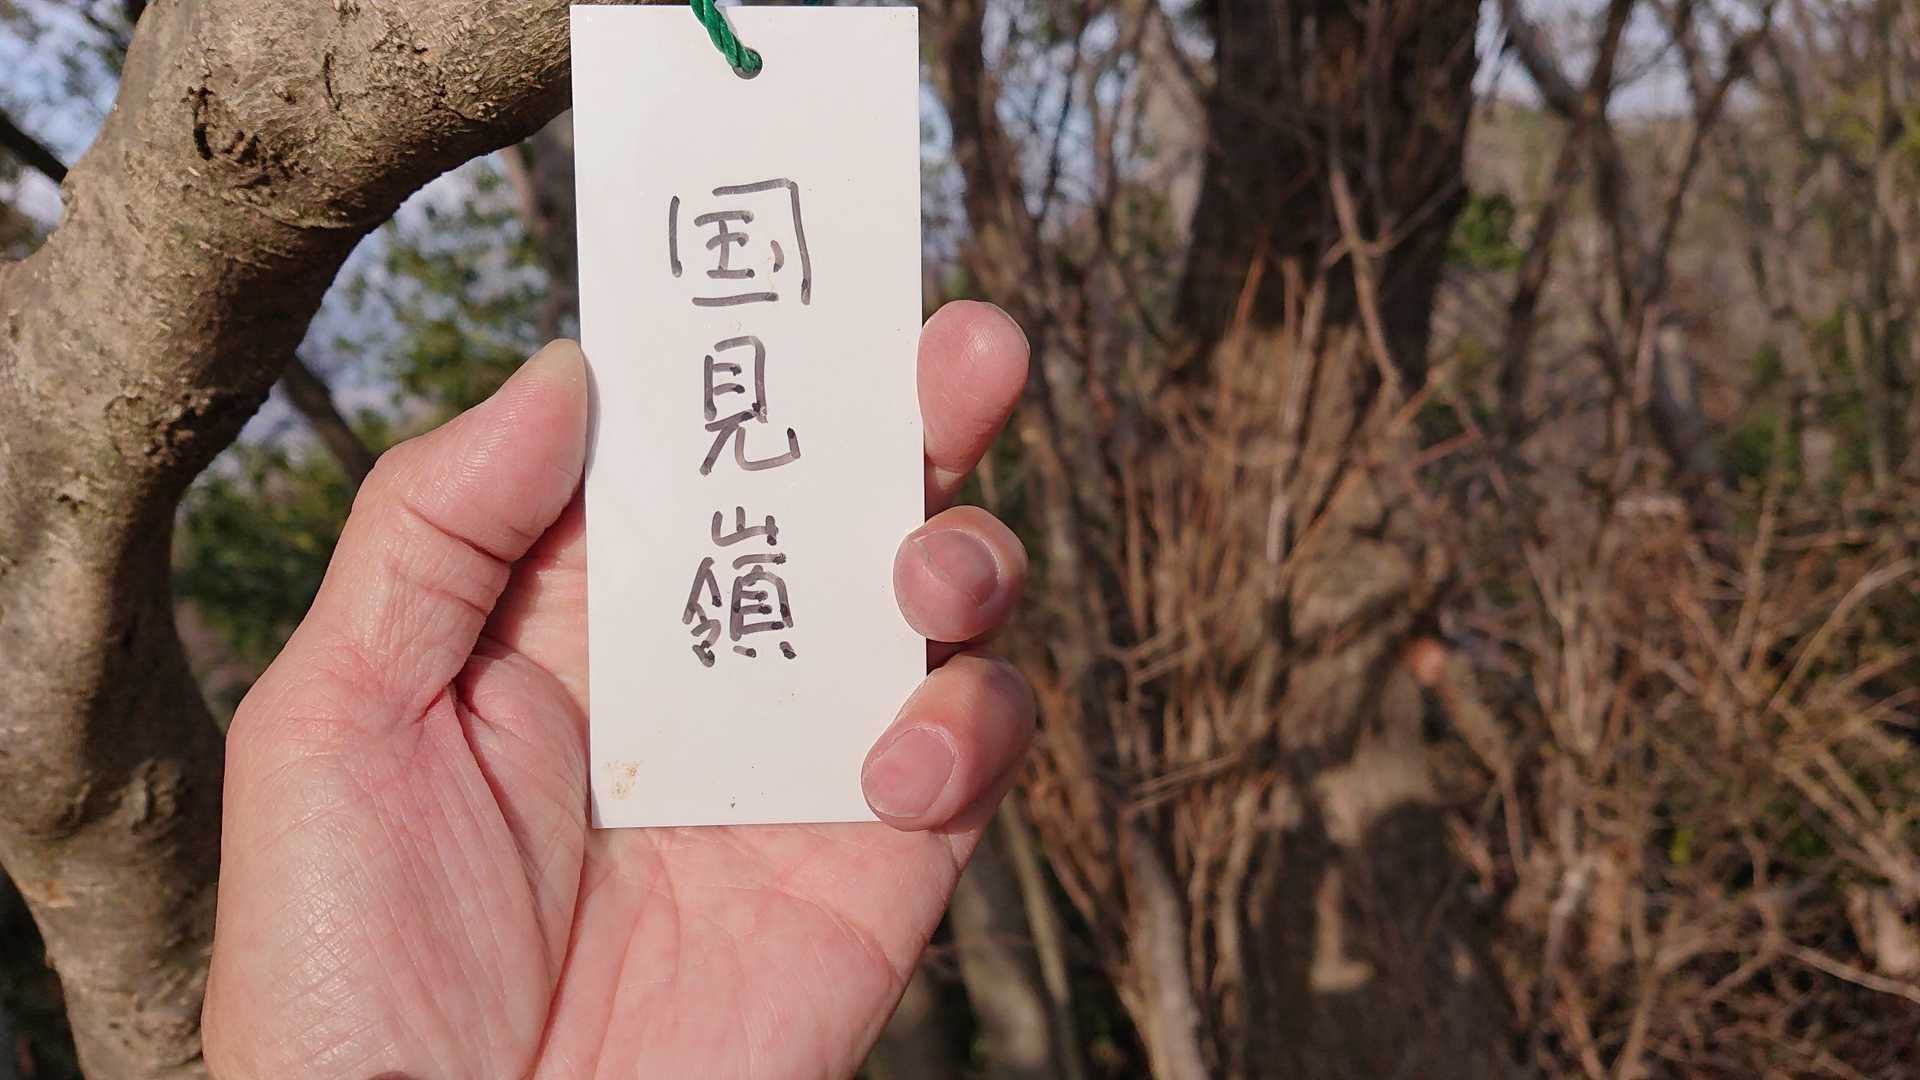 国見嶺